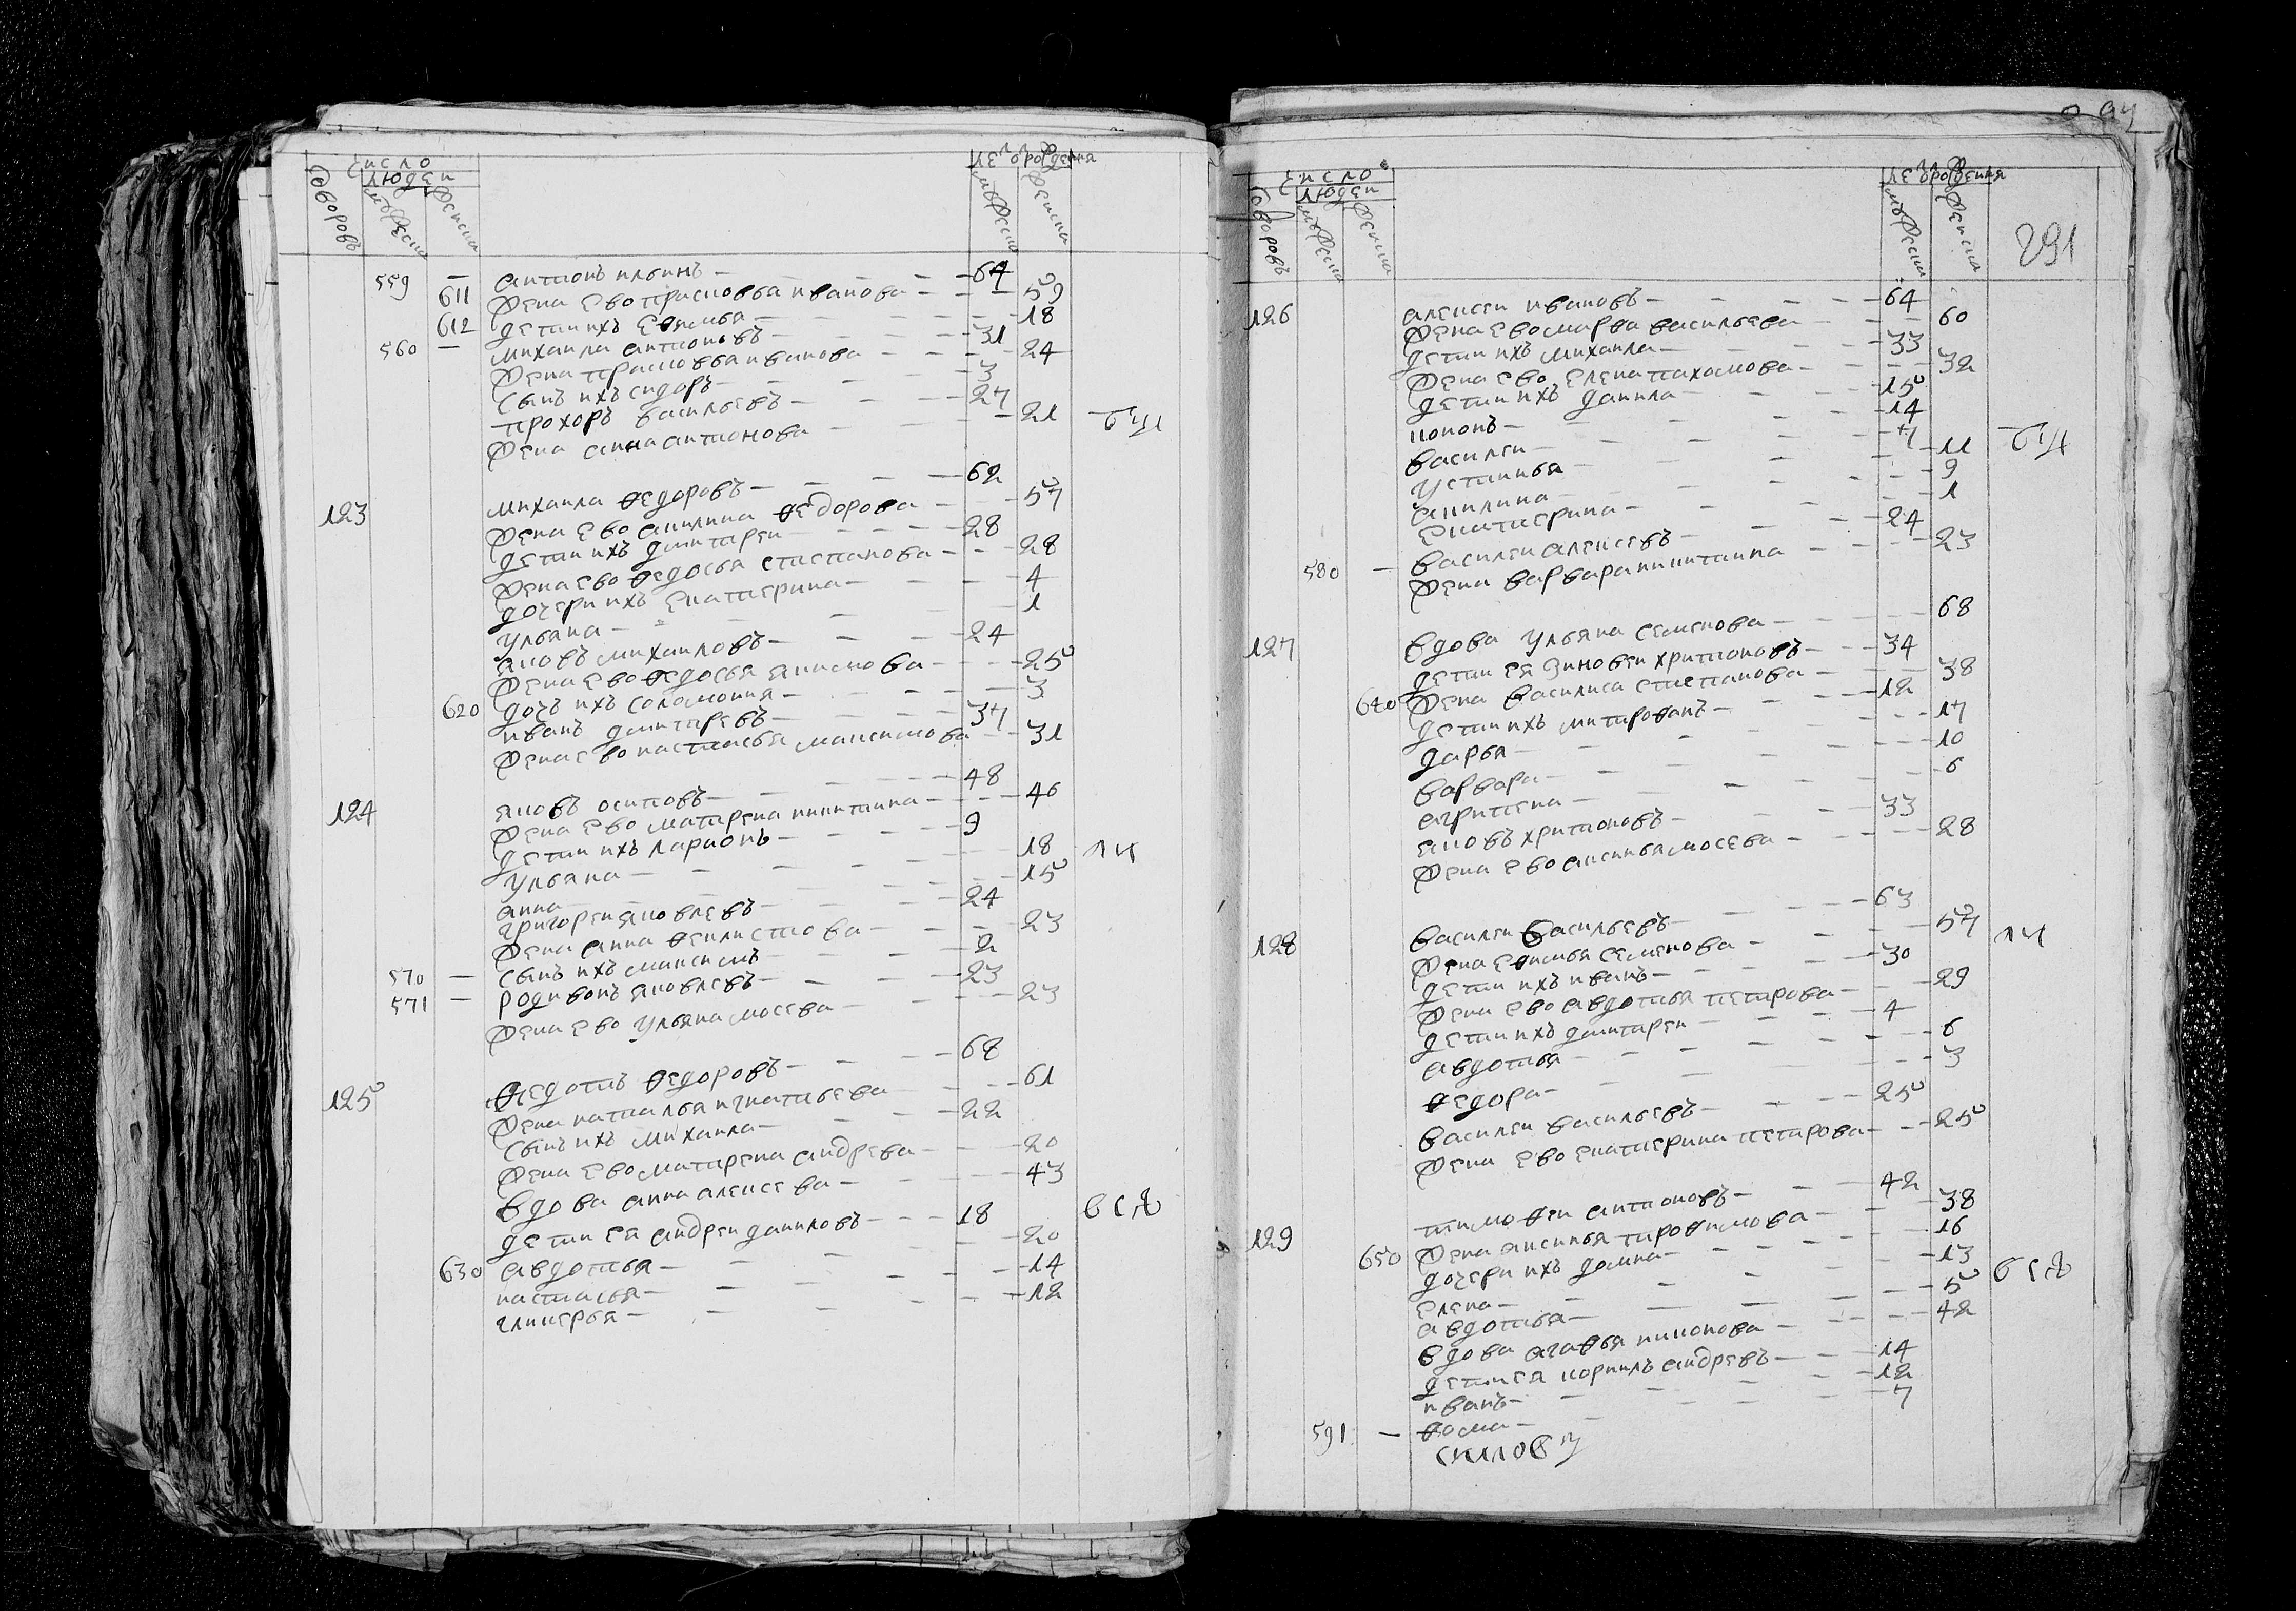 число
людей
лет рождения
дворовъ
мужеска
женска
мужеска
женска
559 — антонъ ильинъ — 64
611 жена ево прасковья иванова — 59
612 дети ихъ ефимья — 18
560 — михаила антоновъ — 31
жена прасковья иванова — 24
сынъ ихъ сидоръ — 3
прохоръ васильевъ — 27
жена анна антонова — 21
123 михаила федоровъ — 62
жена ево акилина федорова — 57
дети ихъ дмитрей — 28
жена ево федосья степанова — 28
дочери ихъ екатерина — 4
ульяна — 1
яковъ михаиловъ — 24
жена ево федосья якимова — 25
620 дочь ихъ соломония — 3
иванъ дмитревъ — 37
жена ево настасья максимова — 31
124 яковъ осиповъ — 48
жена ево матрена никитина — 46
дети ихъ ларионъ — 9
ульяна — 18
анна — 15
григореи яковлевъ — 24
жена анна феклистова — 23
570 — сынъ ихъ максимъ — 2
571 — родивонъ яковлевъ — 23
жена ево ульяна мосева — 23
125 федотъ федоровъ — 68
жена наталья игнатьева — 61
сынъ ихъ михаила — 22
жена ево матрена андрева — 20
вдова анна алексева — 43
дети ея андреи даниловъ — 18
630 авдотья — 20
настасья — 14
гликерья — 12
число
людей
лет рождения
дворовъ
мужеска
женска
мужеска
женска
291
126 алексеи ивановъ — 64
жена ево марфа васильева — 60
дети ихъ михаила — 33
жена ево елена пахомова — 32
дети ихъ данила — 15
кононъ — 14
василеи — 7
устинья — 11
акилина — 9
екатерина — 1
580 — василеи алексевъ — 24
жена варвара никитина — 23
127 вдова ульяна семенова — 68
дети ея зиновеи харитоновъ — 34
640 жена василиса степанова — 38
дети ихъ митрофанъ — 12
дарья — 17
варвара — 10
агрипена — 6
яковъ харитоновъ — 33
жена ево аксинья мосева — 28
128 василеи васильевъ — 63
жена ефимья семенова — 57
дети ихъ иванъ — 30
жена ево авдотья петрова — 29
дети ихъ дмитреи — 4
авдотья — 6
федора — 3
василеи васильевъ — 25
жена ево екатерина петрова — 25
129 тимофеи антоновъ — 42
650 жена аксинья трофимова — 38
дочери ихъ домна — 16
елена — 13
авдотья — 5
вдова агафья никонова — 42
дети ея корнилъ андревъ — 14
иванъ — 12
591 — фома — 7